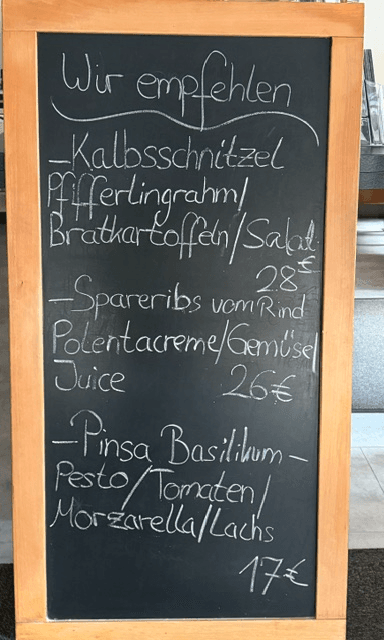 Wir empfehlen
- Kalbsschnitzel
Pfifferlingrahm/
Bratkartoffeln/Salat
28€
- Spareribs vom Rind
Polentacreme/Gemüse/
Juice 26€
- Pinsa Basilikum -
Pesto/Tomaten/
Morzarella/Lachs
17€